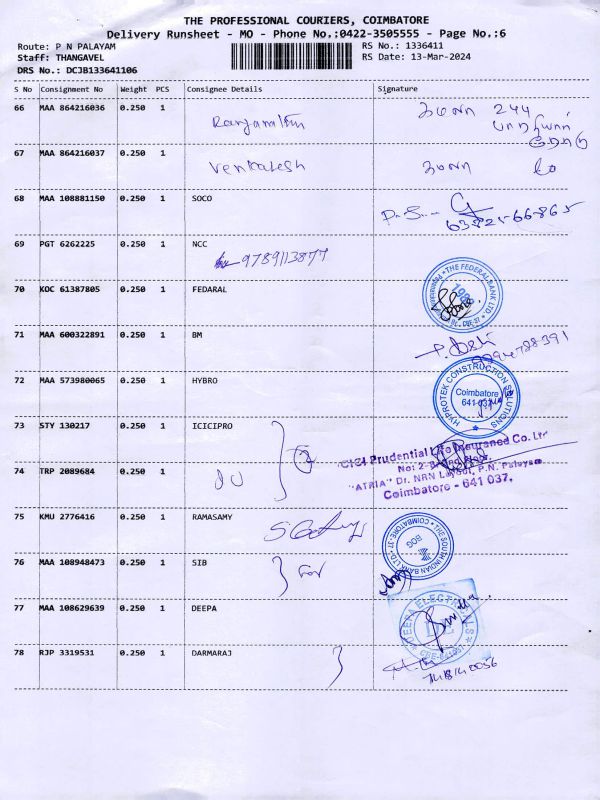 THE PROFESSIONAL COURIERS, COIMBATORE
Delivery Runsheet - MO - Phone No.:0422-3505555 - Page No.:6
Route: P N PALAYAM
RS No.: 1336411
Staff: THANGAVEL
RS Date: 13-Mar-2024
DRS No.: DCJB133641106
S No Consignment No Weight PCS Consignee Details Signature
66 MAA 864216036 0.250 1
244
67 MAA 864216037 0.250 1 Venkatesh
68 MAA 108881150 0.250 1 SOCO
69 PGT 6262225 0.250 1 NCC
9789113877
70 KOC 61387805 0.250 1 FEDARAL
THE FEDERAL BANK LTD.
71 MAA 600322891 0.250 1 BM
72 MAA 573980065 0.250 1 HYBRO
HYPROTEK CONSTRUCTION SOLUTIONS
Coimbatore
641 037
73 STY 130217 0.250 1 ICICIPRO
ICICI Prudential Life Insurance Co. Ltd
74 TRP 2089684 0.250 1
"ATRIA" Dr. NRN Layout, P.N. Palayam
Coimbatore - 641 037.
75 KMU 2776416 0.250 1 RAMASAMY
THE SOUTH INDIAN BANK LTD.
COIMBATORE-37
BOG
76 MAA 108948473 0.250 1 SIB
77 MAA 108629639 0.250 1 DEEPA
DEEPA ELECTRICALS
CBE-641037
78 RJP 3319531 0.250 1 DARMARAJ